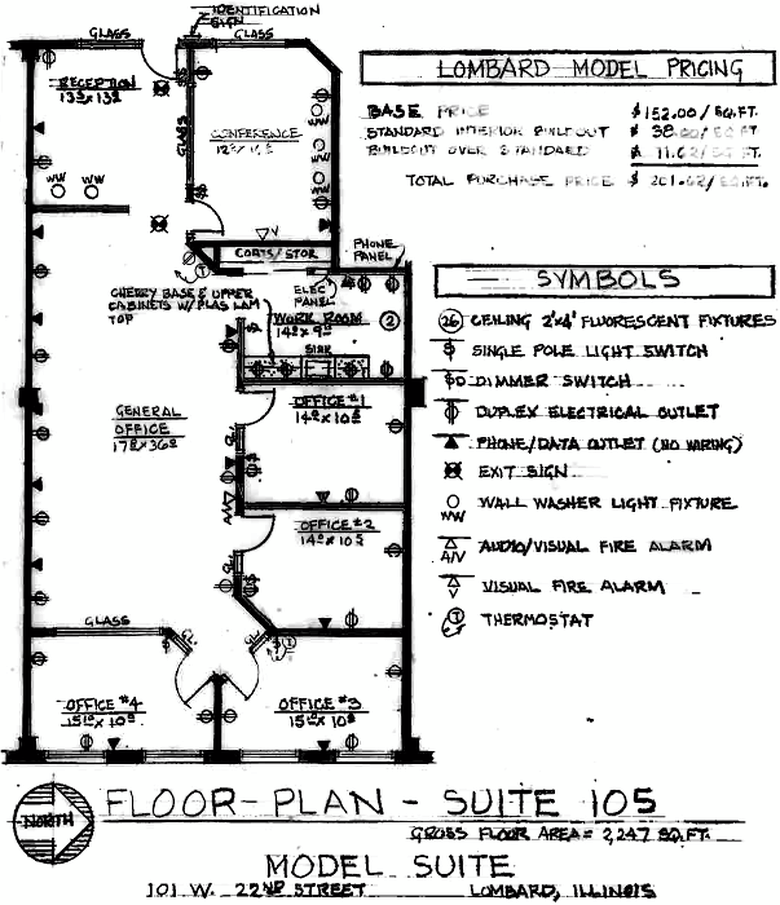 IDENTIFICATION
SIGN
GLASS
GLASS
RECEPTION
GLASS
CONFERENCE
WW
WW
WW
WW WW
V
COATS/STOR
PHONE
PANEL
T
ELEC
PANEL
CHERRY BASE & UPPER
CABINETS W/ PLAS LAM
TOP
WORK ROOM
2
SINK
OFFICE #1
GENERAL
OFFICE
GL
A/V
OFFICE #2
GL
GLASS
GL.
GL
T
OFFICE #4
OFFICE #3
LOMBARD MODEL PRICING
BASE PRICE $152.00/SQ.FT.
STANDARD INTERIOR BUILDOUT $ 38.00/SQ FT
BUILDOUT OVER STANDARD $ 11.62/SQ FT.
TOTAL PURCHASE PRICE $ 201.62/SQ.FT.
SYMBOLS
26 CEILING 2'x4' FLUORESCENT FIXTURES
$ SINGLE POLE LIGHT SWITCH
$D DIMMER SWITCH
DUPLEX ELECTRICAL OUTLET
PHONE/DATA OUTLET (NO WIRING)
EXIT SIGN
WW WALL WASHER LIGHT FIXTURE
A/V AUDIO/VISUAL FIRE ALARM
V VISUAL FIRE ALARM
T THERMOSTAT
NORTH
FLOOR-PLAN - SUITE 105
GROSS FLOOR AREA = 2,247 SQ.FT.
MODEL SUITE
101 W. 22ND STREET LOMBARD, ILLINOIS